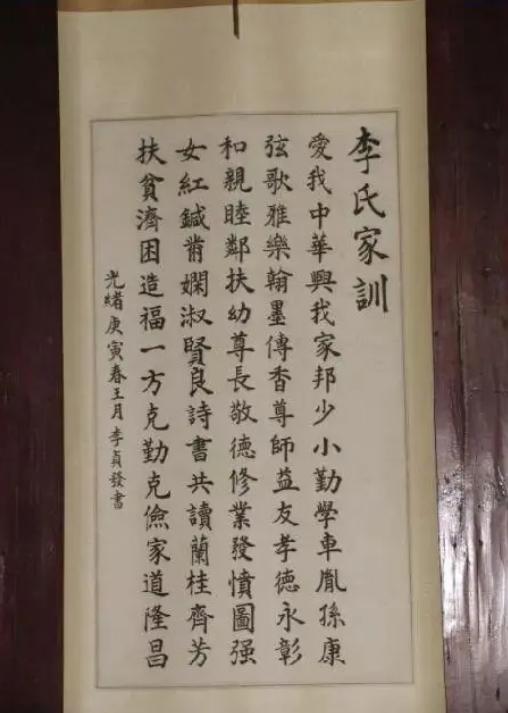 李氏家訓
愛我中華興我家邦少小勤學車胤孫康
弦歌雅樂翰墨傳香尊師益友孝德永彰
和親睦鄰扶幼尊長敬德修業發憤圖强
女紅鍼黹嫻淑賢良詩書共讀蘭桂齊芳
扶貧濟困造福一方克勤克儉家道隆昌
光緒庚寅春王月李貞發書